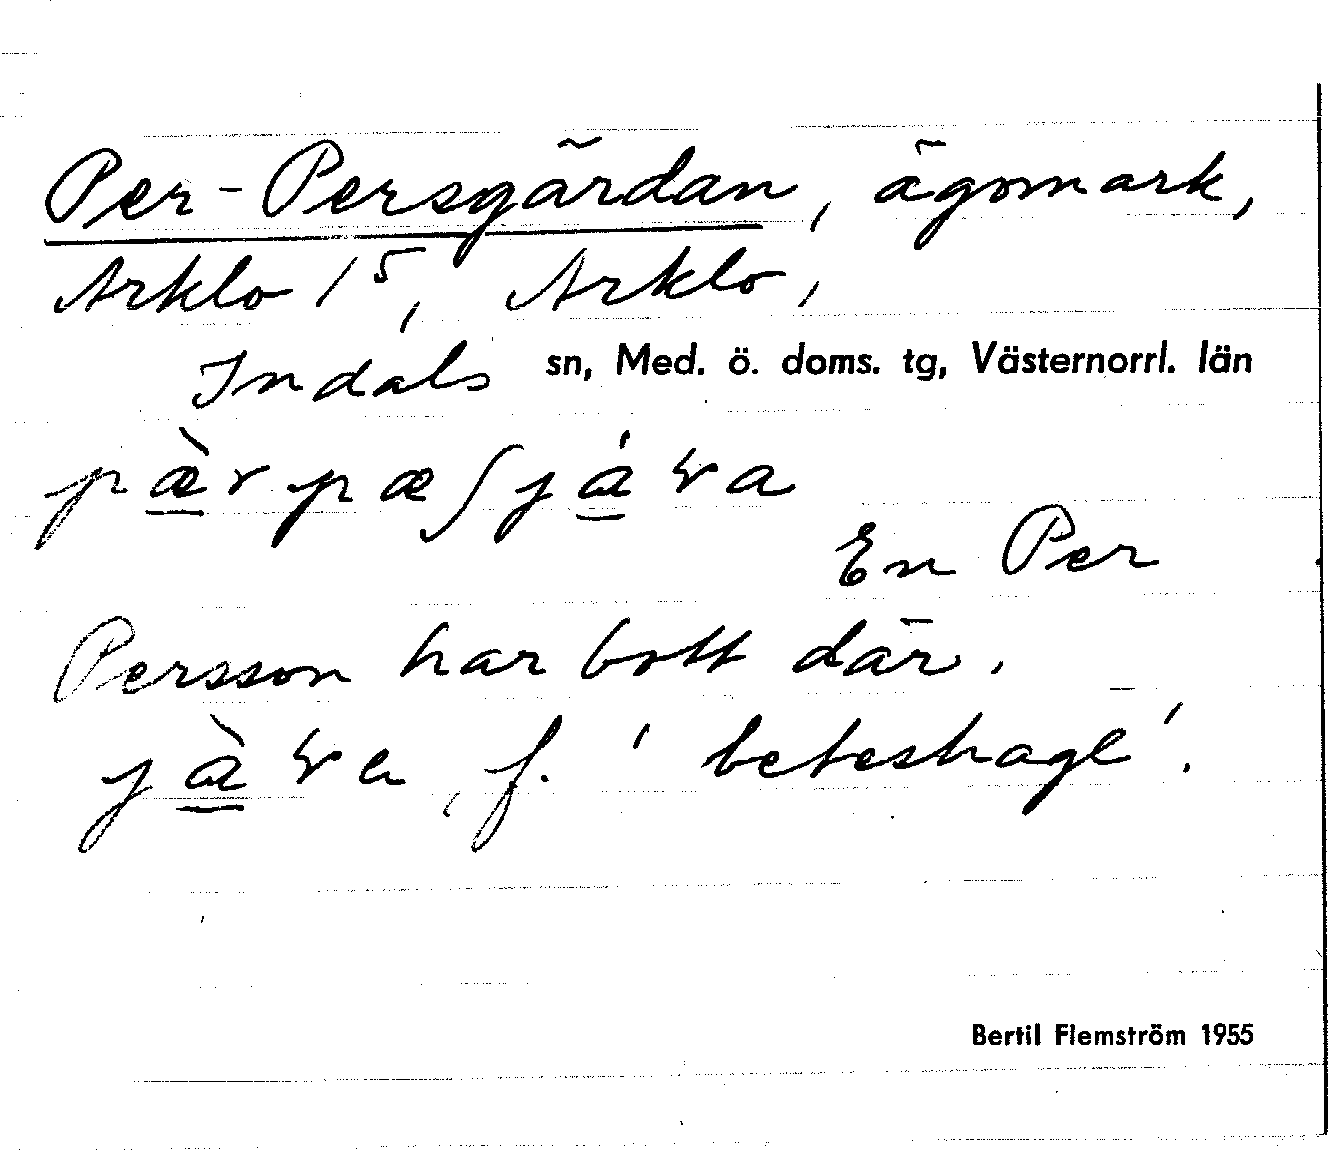 Per-Persgärdan, ägomark,
Arklo 1⁵, Arklo,
Indals sn, Med. ö. doms. tg, Västernorrl. län
pæ̀rpæʃjáɽa
En Per
Persson har bott där.
jàɽa, f. 'beteshage'.
Bertil Flemström 1955